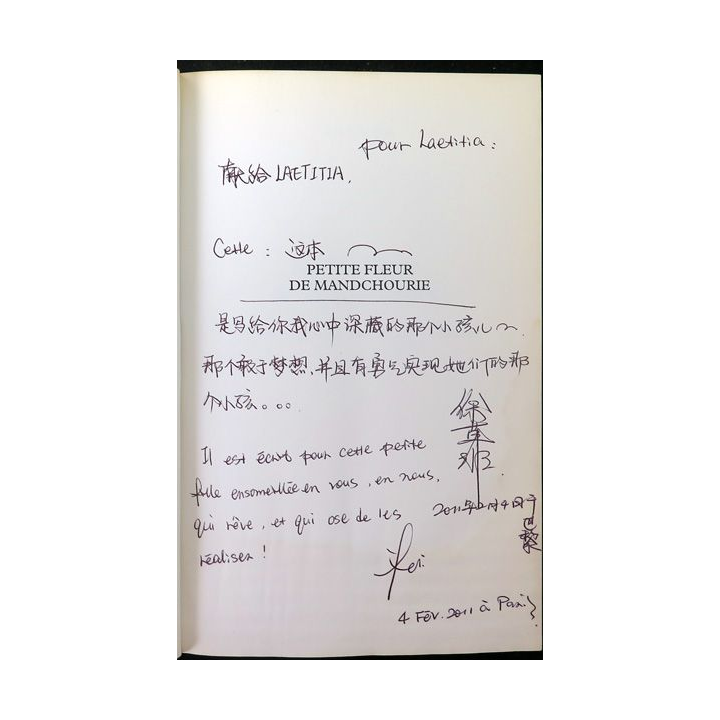 pour Laetitia :
献给 LAETITIA.
Cette : 这本
PETITE FLEUR
DE MANDCHOURIE
是写给你我心中深藏的那个小孩儿~
那个敢于梦想、并且有勇气实现她们的那
个小孩。。。
Il est écrit pour cette petite
fille ensomeillée en vous, en nous,
qui rêve, et qui ose de les
réaliser !
徐
2011年2月4日于
巴黎
4 Fév. 2011 à Paris